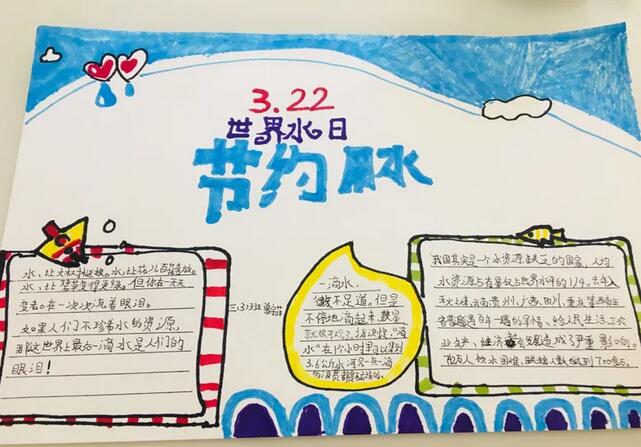 3.22
世界水日
节约用水
水,让大树挺拔。水,让花儿百花齐放。
水,让碧草变得更绿。但你在一天天
变老。在一次次流着眼泪。
如果人们不珍惜水的资源,
那这世界上最后一滴水是人们的
眼泪!
三(3)班
一滴水,
微不足道。但是
不停地滴起来,数量
就很可观了。据测定,“滴
水”在1个小时里可以集到
3.6公斤水
我国其实是一个水资源缺乏的国家,人均
水资源占有量仅占世界水平的1/4。去年
天上,云南,贵州,广西,四川,重庆
百年一遇的旱情,给人民生活,工农
业生产,经济发展造成了严重影响。
万人饮水困难,